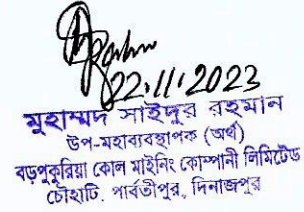 22.11.2023
মুহাম্মদ সাইদুর রহমান
উপ-মহাব্যবস্থাপক (অর্থ)
বড়পুকুরিয়া কোল মাইনিং কোম্পানী লিমিটেড
চৌহাটি, পার্বতীপুর, দিনাজপুর